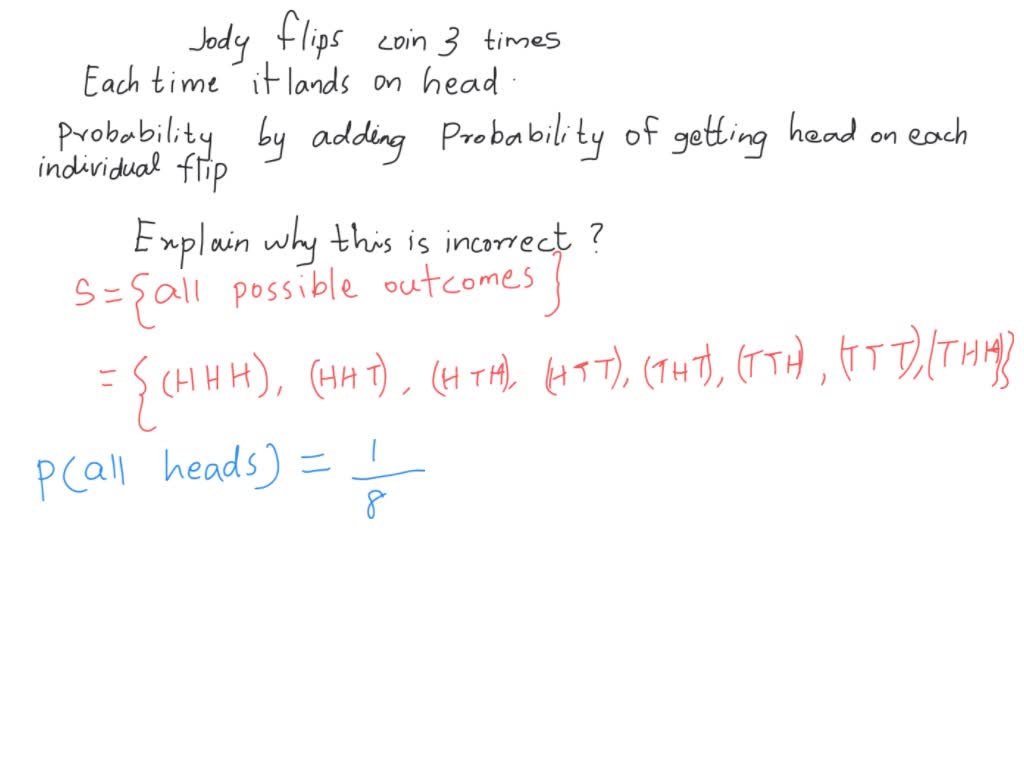 Jody flips coin 3 times
Each time it lands on head.
Probability by adding Probability of getting head on each
individual flip
Explain why this is incorrect?
S = {all possible outcomes}
= {(HHH), (HHT), (HTH), (HTT), (THT), (TTH), (TTT), (THH)}
P(all heads) = 1/8